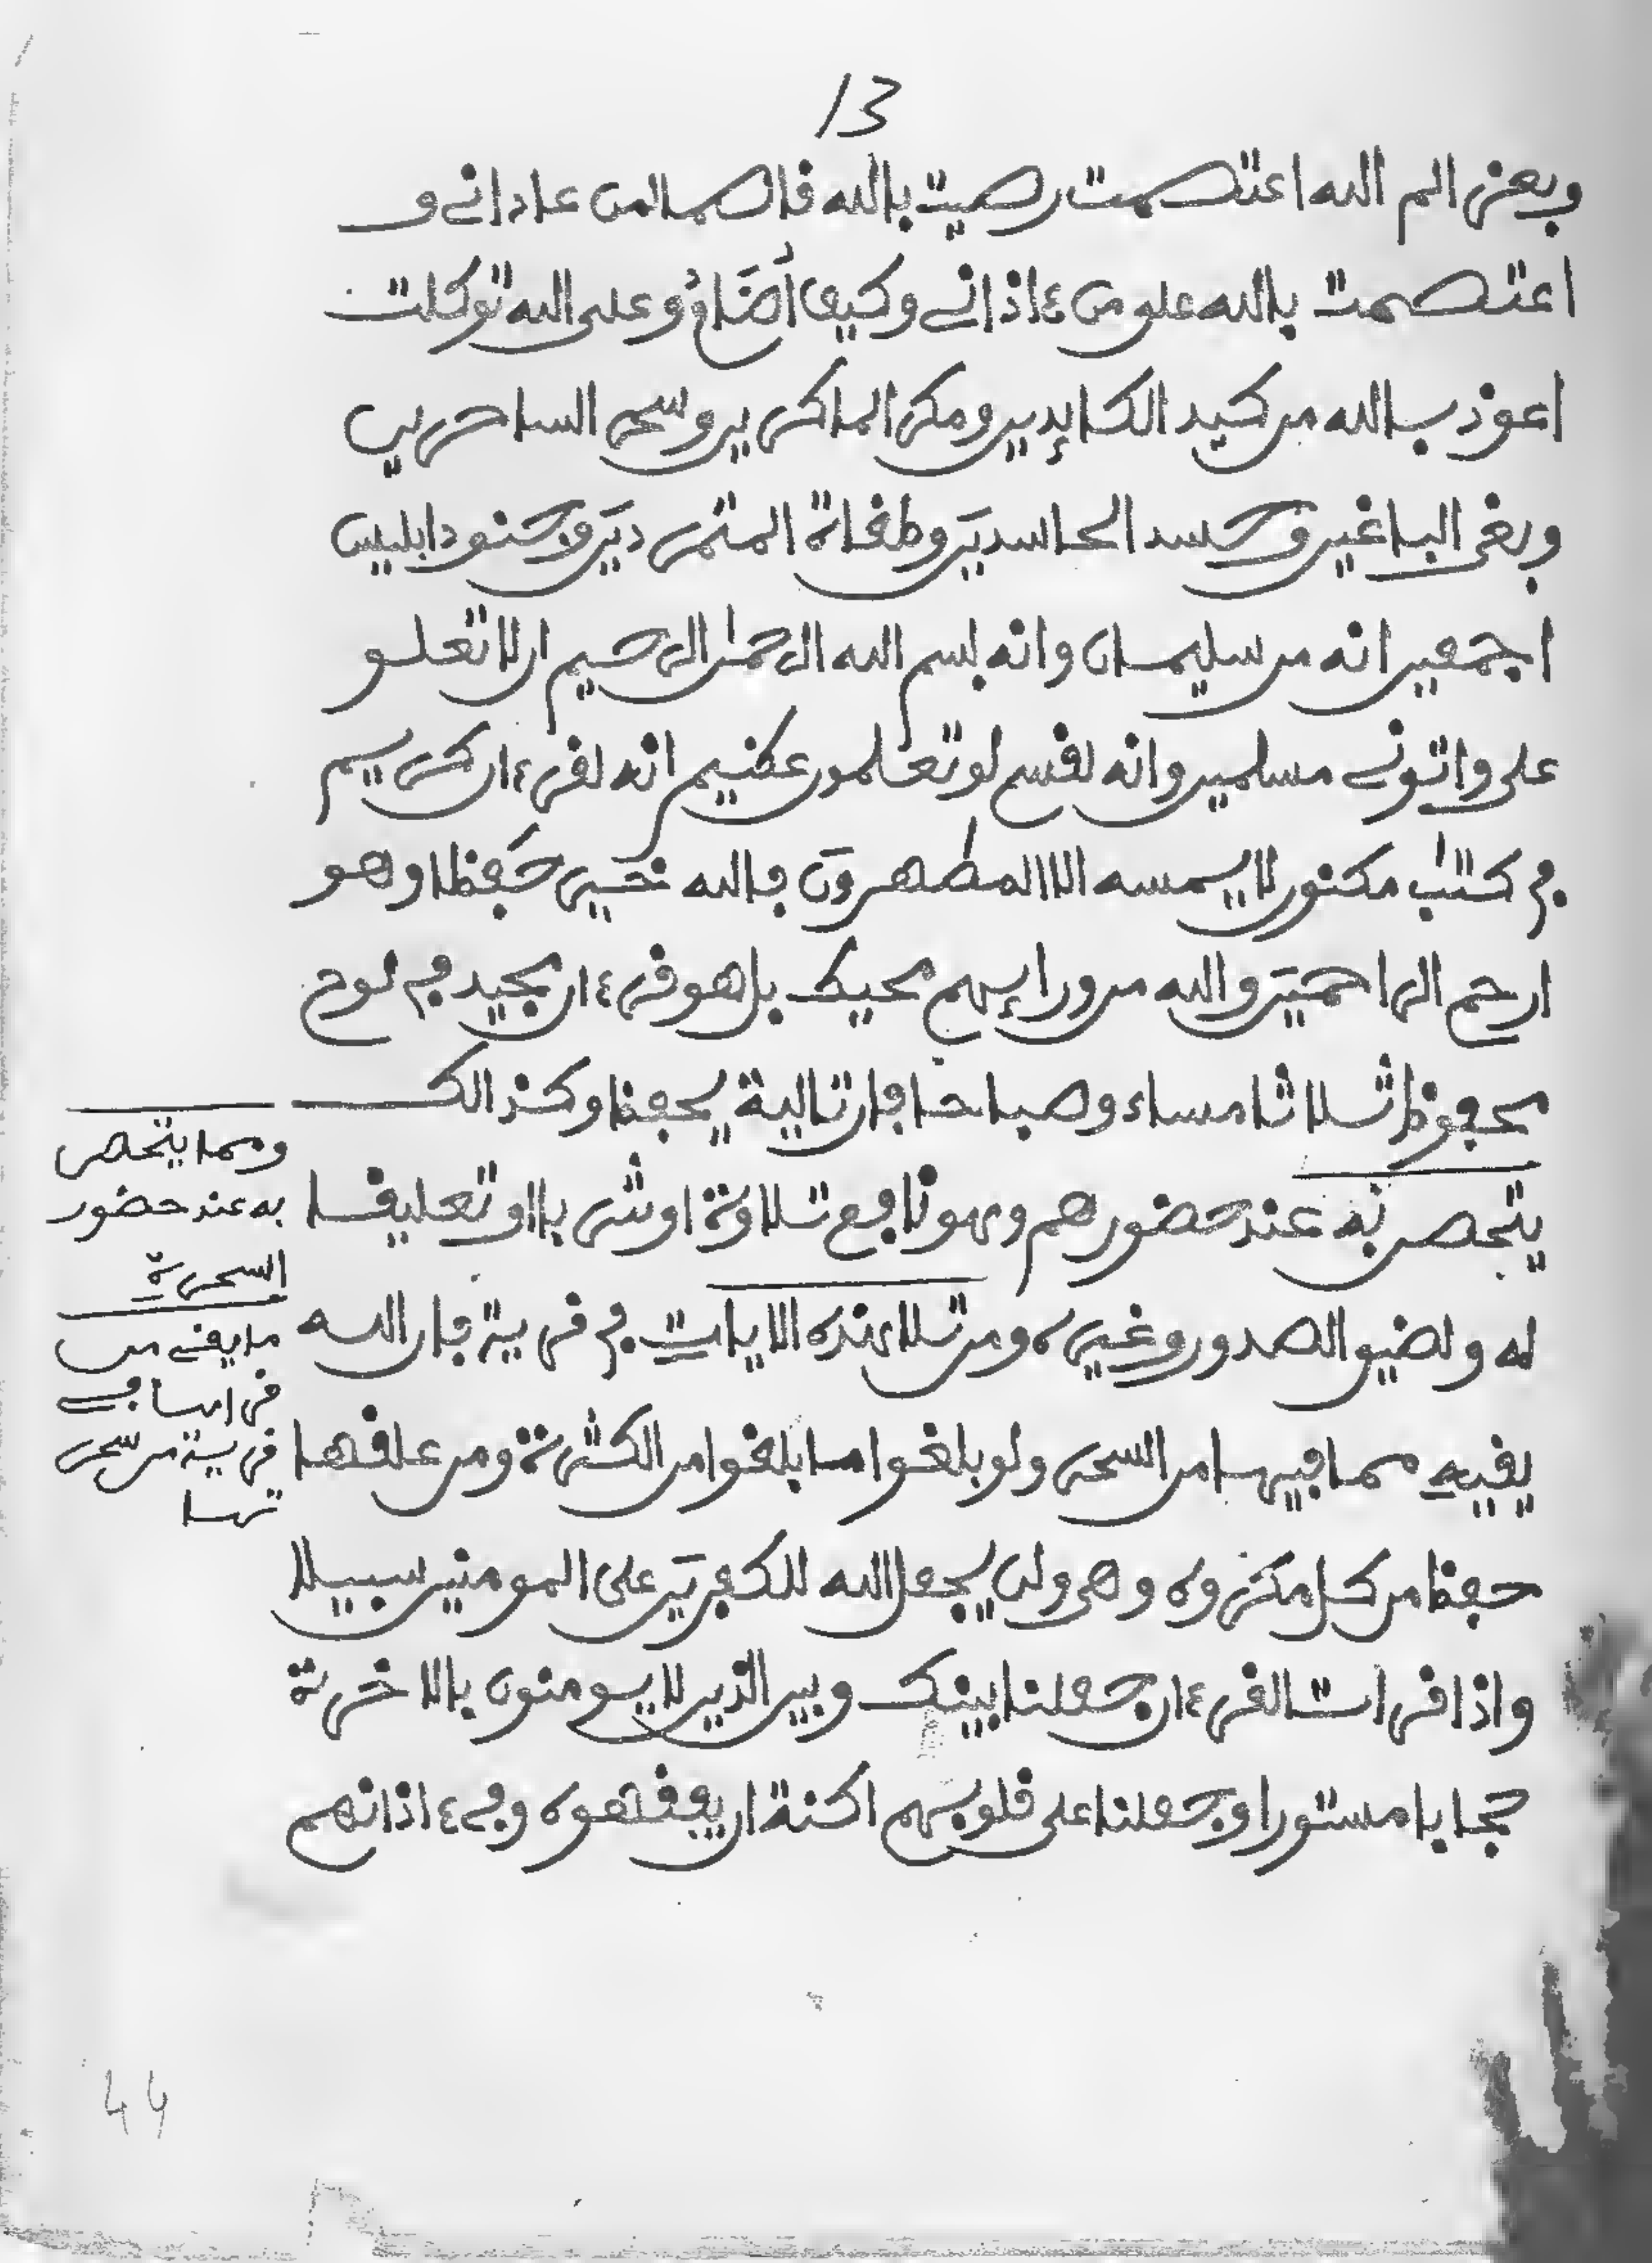 13
وبعز الم الله اعتصمت رميت بالله قاصما لمن عاداني و
اعتصمت بالله على من ءاذاني وكيف أضام وعلى الله توكلت
اعوذ بالله من كيد الكايدين ومكر الماكرين وسحر الساحرين
وبغي الباغين وحسد الحاسدين وطغاة المتمردين وجنود ابليس
اجمعين انه من سليمان وانه بسم الله الرحمٰن الرحيم ان لا تعلو
علي واتوني مسلمين وانه لقسم لو تعلمون عظيم انه لقرءان كريم
في كتٰب مكنون لا يمسه الا المطهرون فالله خير حفظا وهو
ارحم الراحمين والله من ورايهم محيط بل هو قرءان مجيد في لوح
محفوظ ثلاثا مساء وصباحا فان تاليه يحفظ وكذالك
يتحصن به عند حضورهم وهو نافع تلاوة او شربا او تعليقا
له ولضيق الصدور وغيره ومن تلا هذه الايات في قرية فان الله
يقيه مما فيها من السحر ولو بلغوا ما بلغوا من الكثرة ومن علقها
حفظ من كل مكروه وهي ولن يجعل الله للكفرين على المومنين سبيلا
واذا قرات القرءان جعلنا بينك وبين الذين لا يومنون بالاخرة
حجابا مستورا وجعلنا على قلوبهم اكنة ان يفقهوه وفي ءاذانهم
ومما يتحصن
به عند حضور
السحرة
ما يقي من
قراها في
قرية من سحر
تها
44